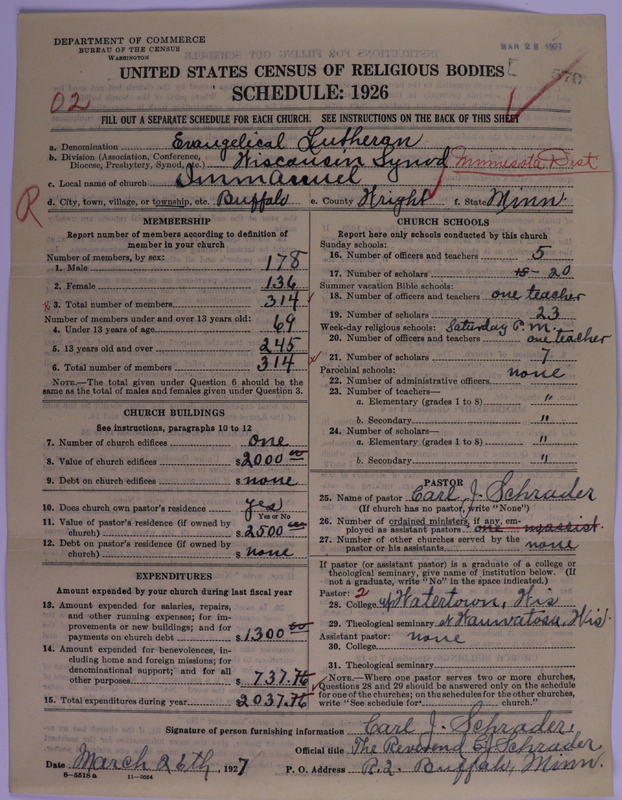 DEPARTMENT OF COMMERCE
BUREAU OF THE CENSUS
WASHINGTON
MAR 28 1927
UNITED STATES CENSUS OF RELIGIOUS BODIES
570
SCHEDULE: 1926
02
FILL OUT A SEPARATE SCHEDULE FOR EACH CHURCH. SEE INSTRUCTIONS ON THE BACK OF THIS SHEET
a. Denomination Evangelical Lutheran
b. Division (Association, Conference, Diocese, Presbytery, Synod, etc.) Wisconsin Synod Minnesota Dist
c. Local name of church Immanuel
d. City, town, village, or township, etc. Buffalo e. County Wright f. State Minn.
R
MEMBERSHIP
Report number of members according to definition of
member in your church
Number of members, by sex:
1. Male 178
2. Female 136
3. Total number of members 314
Number of members under and over 13 years old:
4. Under 13 years of age 69
5. 13 years old and over 245
6. Total number of members 314
NOTE.—The total given under Question 6 should be
same as the total of males and females given under Question 3.
CHURCH BUILDINGS
See instructions, paragraphs 10 to 12
7. Number of church edifices one
8. Value of church edifices $2000 00
9. Debt on church edifices $ none
10. Does church own pastor's residence yes
Yes or No
11. Value of pastor's residence (if owned by
church) $2500 00
12. Debt on pastor's residence (if owned by
church) $ none
EXPENDITURES
Amount expended by your church during last fiscal year
13. Amount expended for salaries, repairs,
and other running expenses; for im-
provements or new buildings; and for
payments on church debt $1300 00
14. Amount expended for benevolences, in-
cluding home and foreign missions; for
denominational support; and for all
other purposes $ 737.76
15. Total expenditures during year $2037.76
CHURCH SCHOOLS
Report here only schools conducted by this church
Sunday schools:
16. Number of officers and teachers 5
17. Number of scholars 18- 20
Summer vacation Bible schools:
18. Number of officers and teachers one teacher
19. Number of scholars 23
Week-day religious schools: Saturday P.M.
20. Number of officers and teachers one teacher
21. Number of scholars 7
Parochial schools: none
22. Number of administrative officers
23. Number of teachers—
a. Elementary (grades 1 to 8) "
b. Secondary "
24. Number of scholars—
a. Elementary (grades 1 to 8) "
b. Secondary "
PASTOR
25. Name of pastor Carl J. Schrader
(If church has no pastor, write "None")
26. Number of ordained ministers, if any, em-
ployed as assistant pastors
27. Number of other churches served by the
pastor or his assistants none
If pastor (or assistant pastor) is a graduate of a college or
theological seminary, give name of institution below. (If
not a graduate, write "No" in the space indicated.)
Pastor: 2
28. College at Watertown, Wis
29. Theological seminary at Wauwatosa, Wis.
Assistant pastor: none
30. College
31. Theological seminary
NOTE.—Where one pastor serves two or more churches,
Questions 28 and 29 should be answered only on the schedule
for one of the churches; on the schedule for the other churches,
write "See schedule for church."
Signature of person furnishing information Carl J. Schrader,
Official title The Reverend C J Schrader
Date March 26th, 1927 P. O. Address R.2. Buffalo, Minn.
8-5518a 11-9064